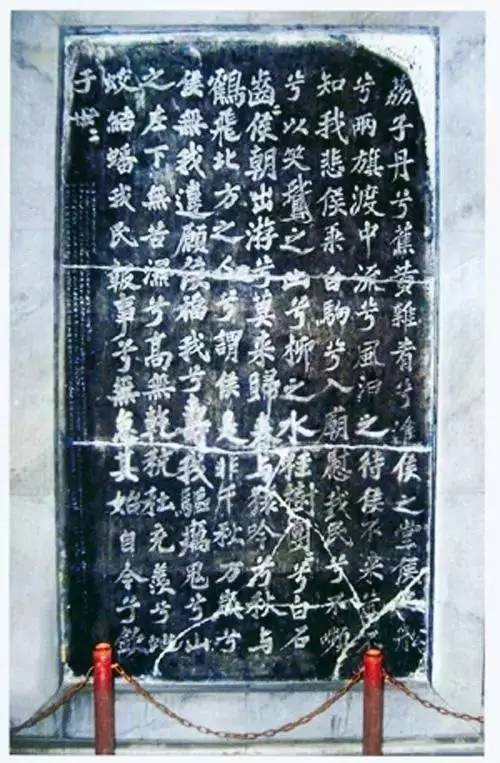 荔子丹兮蕉黄雜肴兮進侯之堂侯之船
兮兩旗渡中流兮風汨之待侯不來兮不
知我悲侯乘白駒兮入廟慰我民兮不嚬
兮以笑鵞之山兮柳之水桂樹團〻兮白石
齒〻侯朝出游兮莫來歸春與猨吟兮秋與
鶴飛北方之人兮謂侯是非千秋万歲兮
侯無我違願侯福我兮壽我驅癘鬼兮山
之左下無苦濕兮高無乾秔稌充羨兮蛇
蛟結蟠我民報事兮無怠其始自今兮欽
于世〻